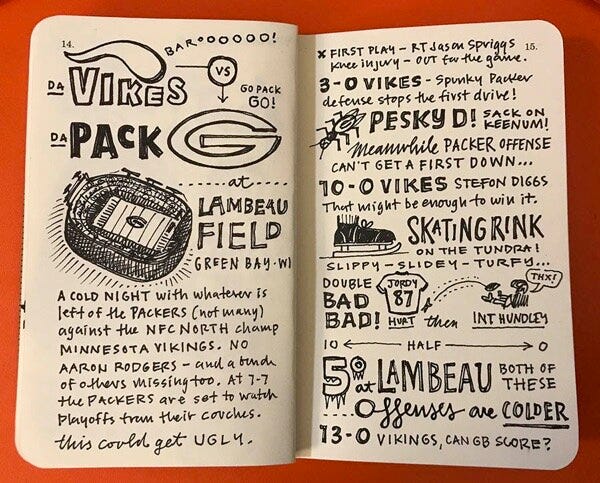 14.
BAROOOOOO!
DA VIKES
VS
GO PACK
GO!
DA PACK
G
at
LAMBEAU
FIELD
GREEN BAY·WI
A COLD NIGHT with whatever is
left of the PACKERS (not many)
against the NFC NORTH champ
MINNESOTA VIKINGS. NO
AARON RODGERS - and a bunch
of others missing too. AT 7-7
the PACKERS are set to watch
playoffs from their couches.
this could get UGLY.
15.
x FIRST PLAY - RT Jason Spriggs
knee injury - OUT for the game.
3-0 VIKES - Spunky Packer
defense stops the first drive!
PESKY D! SACK ON
KEENUM!
Meanwhile PACKER OFFENSE
CAN'T GET A FIRST DOWN...
10-0 VIKES STEFON DIGGS
That might be enough to win it.
SKATING RINK
ON THE TUNDRA!
SLIPPY - SLIDEY - TURFY...
DOUBLE
BAD
BAD!
JORDY
87
HURT
then
THX!
INT HUNDLEY
10 ← HALF → 0
5° at LAMBEAU BOTH OF
THESE
Offenses are COLDER
13-0 VIKINGS, CAN GB SCORE?